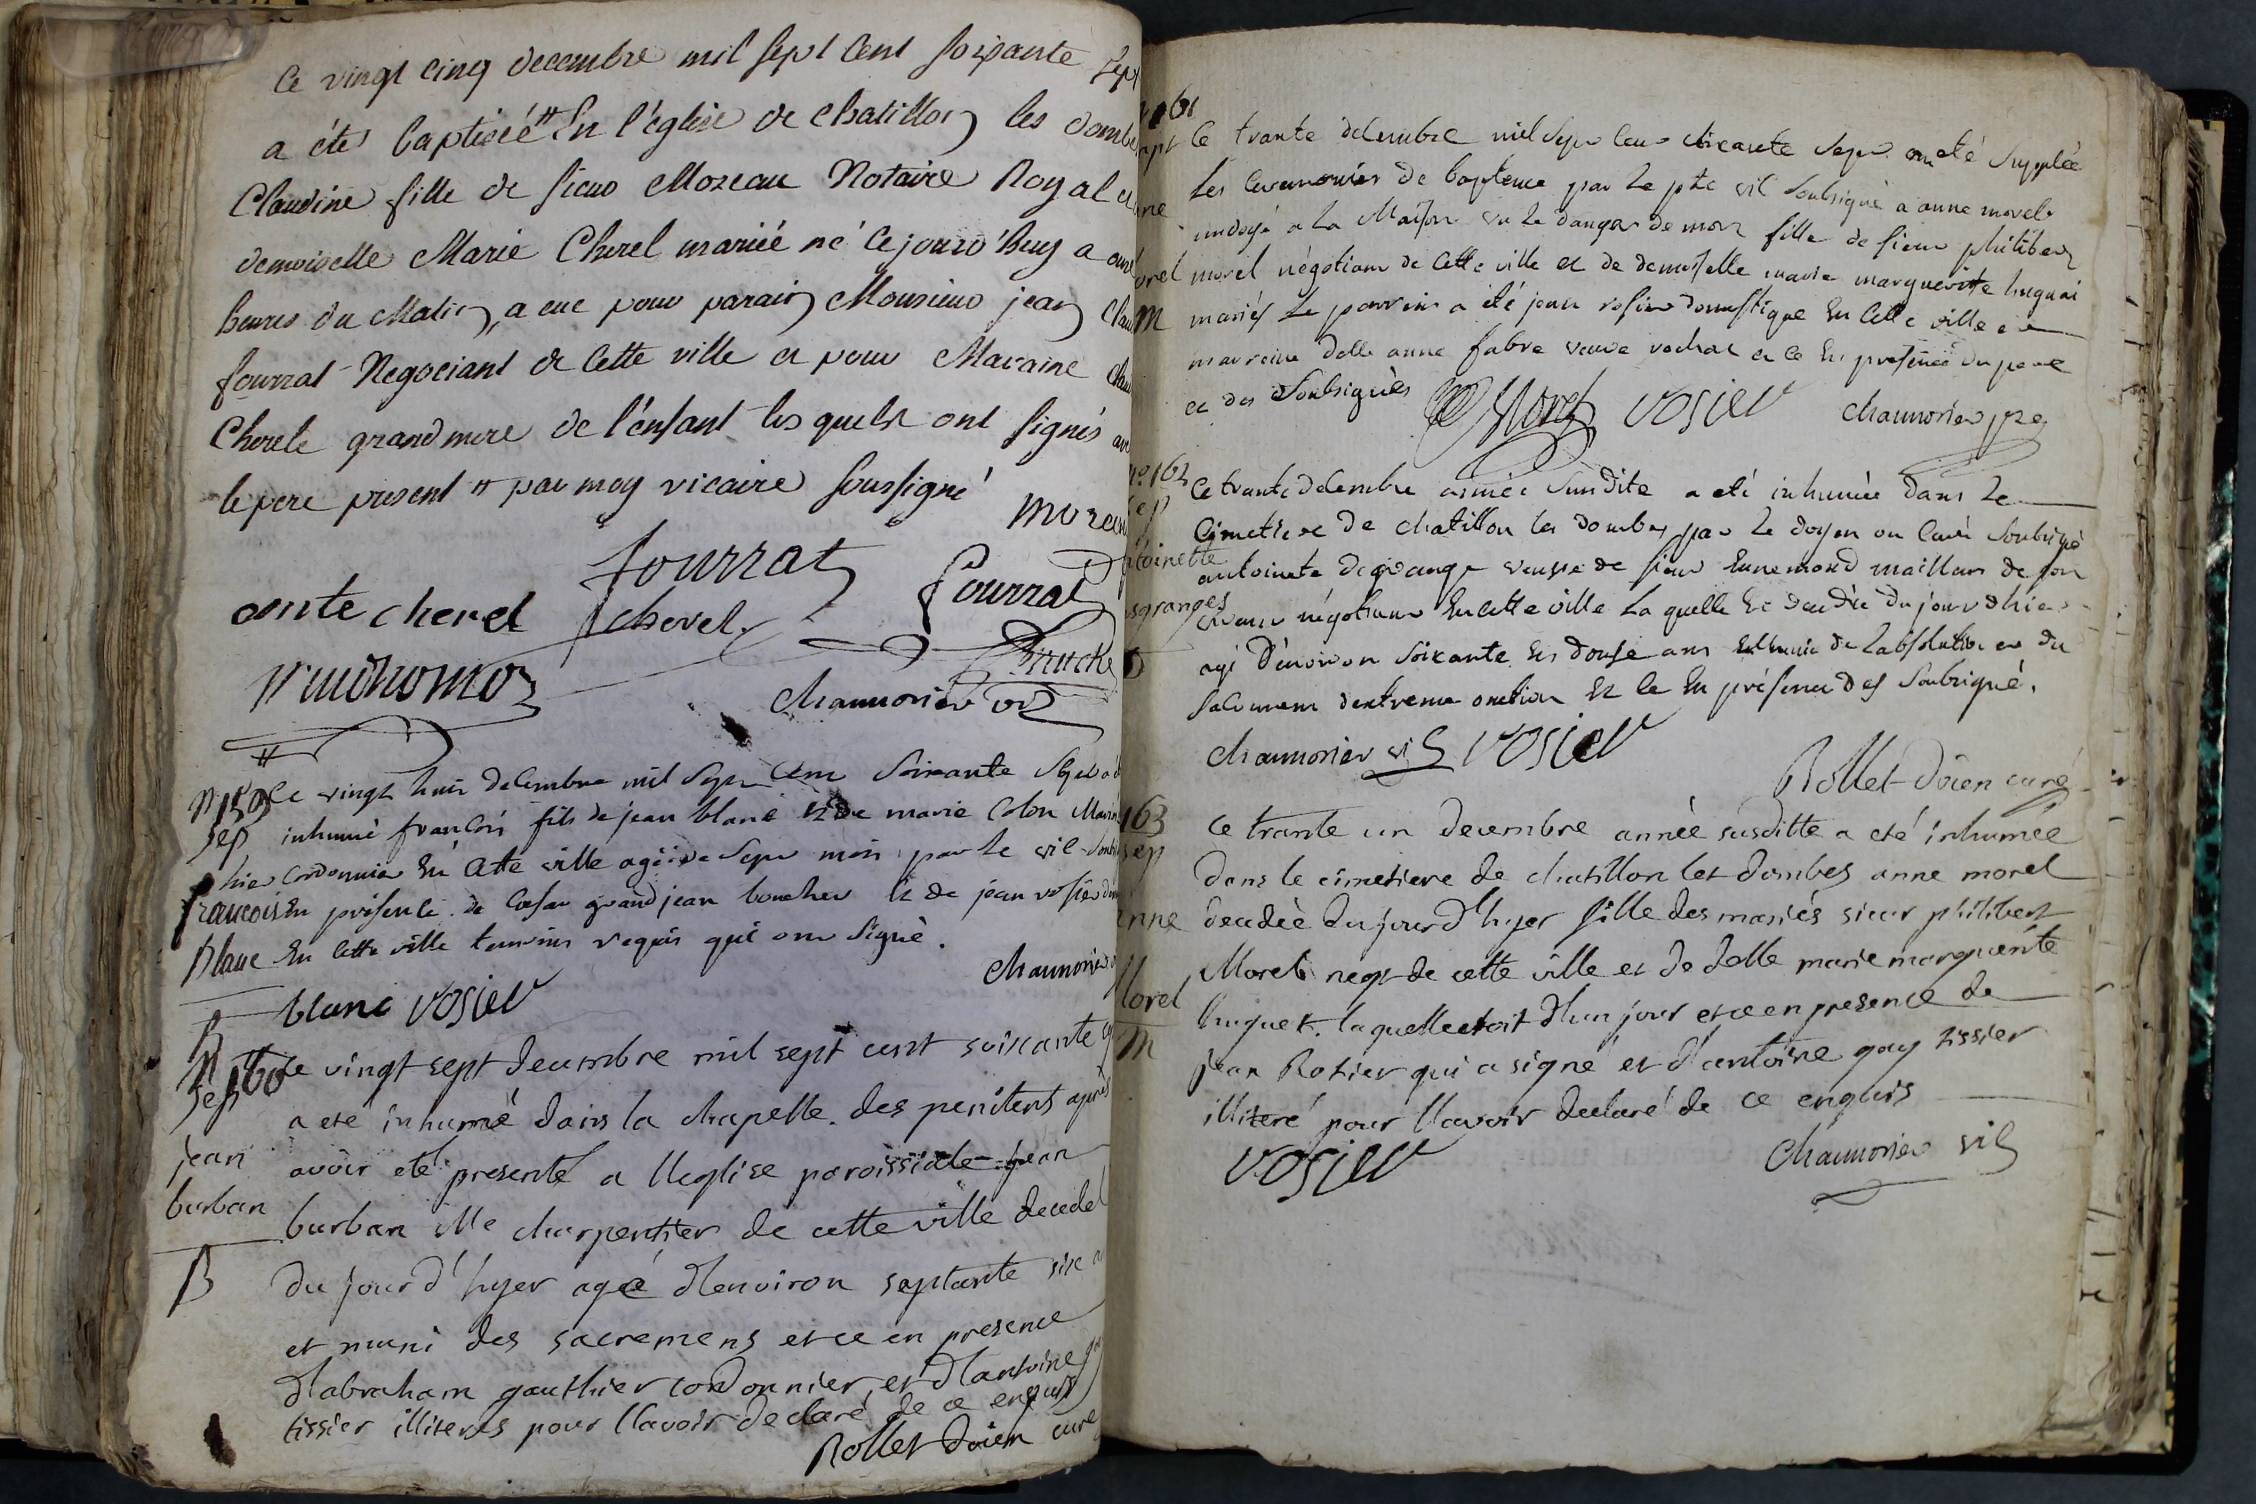 Ce vingt cinq decembre mil sept cent soixante sept
a étés baptiséé # En l'église de chatillon les dombes
Claudine fille de sieur Moreau Notaire Royal et
demoiselle Marie Cherel mariéé né ce jourd'huy a onze
heures du Matin, a eue pour parain Monsieur jean Clau
fourrat Negociant de cette ville et pour Maraine clau
Cherele grand mere de l'énfant les quels ont signés avec
le pere present # par moy vicaire soussigné
Moreau
fourrat
fourrat
conte cherel
cherel
Prudhomo
Chaumorier vic
#
N 159
sep
francois
Blanc
Ce vingt huit decembre mil sept cent soixante sept a été
inhumé francois fils de jean blanc et de marie Colon Mariné
hier cordonnier En cette ville agé de sept mois par le vic soub
En présence de Cesar grandjean boucher et de jean rosier dom
En cette ville temoins requis qui ont signé.
Chaumorier
blanc rosier
B
N 160
sep
jean
burban
B
Ce vingt sept decembre mil sept cent soixante
a eté inhumé dans la chapelle des penitents après
avoir eté presenté a l'leglise paroissiale jean
burban Me charpentier de cette ville decedé
du jour d'hyer agé d'lenviron septante six
et muni des sacremens et ce en presence
d'labraham gauthier cordonnier et d'lantoine
tissier illiterés pour l'lavoir declaré de ce enquis
Rollet doien curé
161
Ce trante decembre mil sept cent soixante sept on eté supplée
les ceremonies de bapteme par le pte vic soubsigné a anne morel
undoyé a la Maison vu le danger de mort fille de sieur philibert
morel négotiant de cette ville et de demoiselle marie marguerite huguai
mariés le parrein a été jean rosier domestique En cette ville et
marreine delle anne fabre veuve rochat et ce En présence du pere
et des soubsignés
Morel rosier chaumorier ptre
n° 162
sep
toinette
sgranges
D
Ce trante decembre année susdite a eté inhumée dans le
Cimetiere de chatillon les dombes par le doyen ou curé soubsigné
antoinete degrange veuve de sieur Ennemond maillan de son
vivant négotiant En cette ville la quelle Et decedée du jour dhier
agé d'environ soixante et douse ans Et munie de l'absolution et du
sacrement dextreme onction Et ce En présence des soubsigné.
chaumorier vic rosier
Rollet doien curé
163
sep
anne
Morel
M
Ce trante un decembre année susditte a eté inhumée
dans le cimetiere de chatillon les dombes anne morel
decedée du jour d'hyer fille des mariés sieur philibert
Morel negt de cette ville et de delle marie marguerite
huguet. laquelle etoit d'lun jour et ce en presence de
jean Rosier qui a signé et d'lantoine gay tissier
illiteré pour l'lavoir declaré de ce enquis
rosier
Chaumorier vic